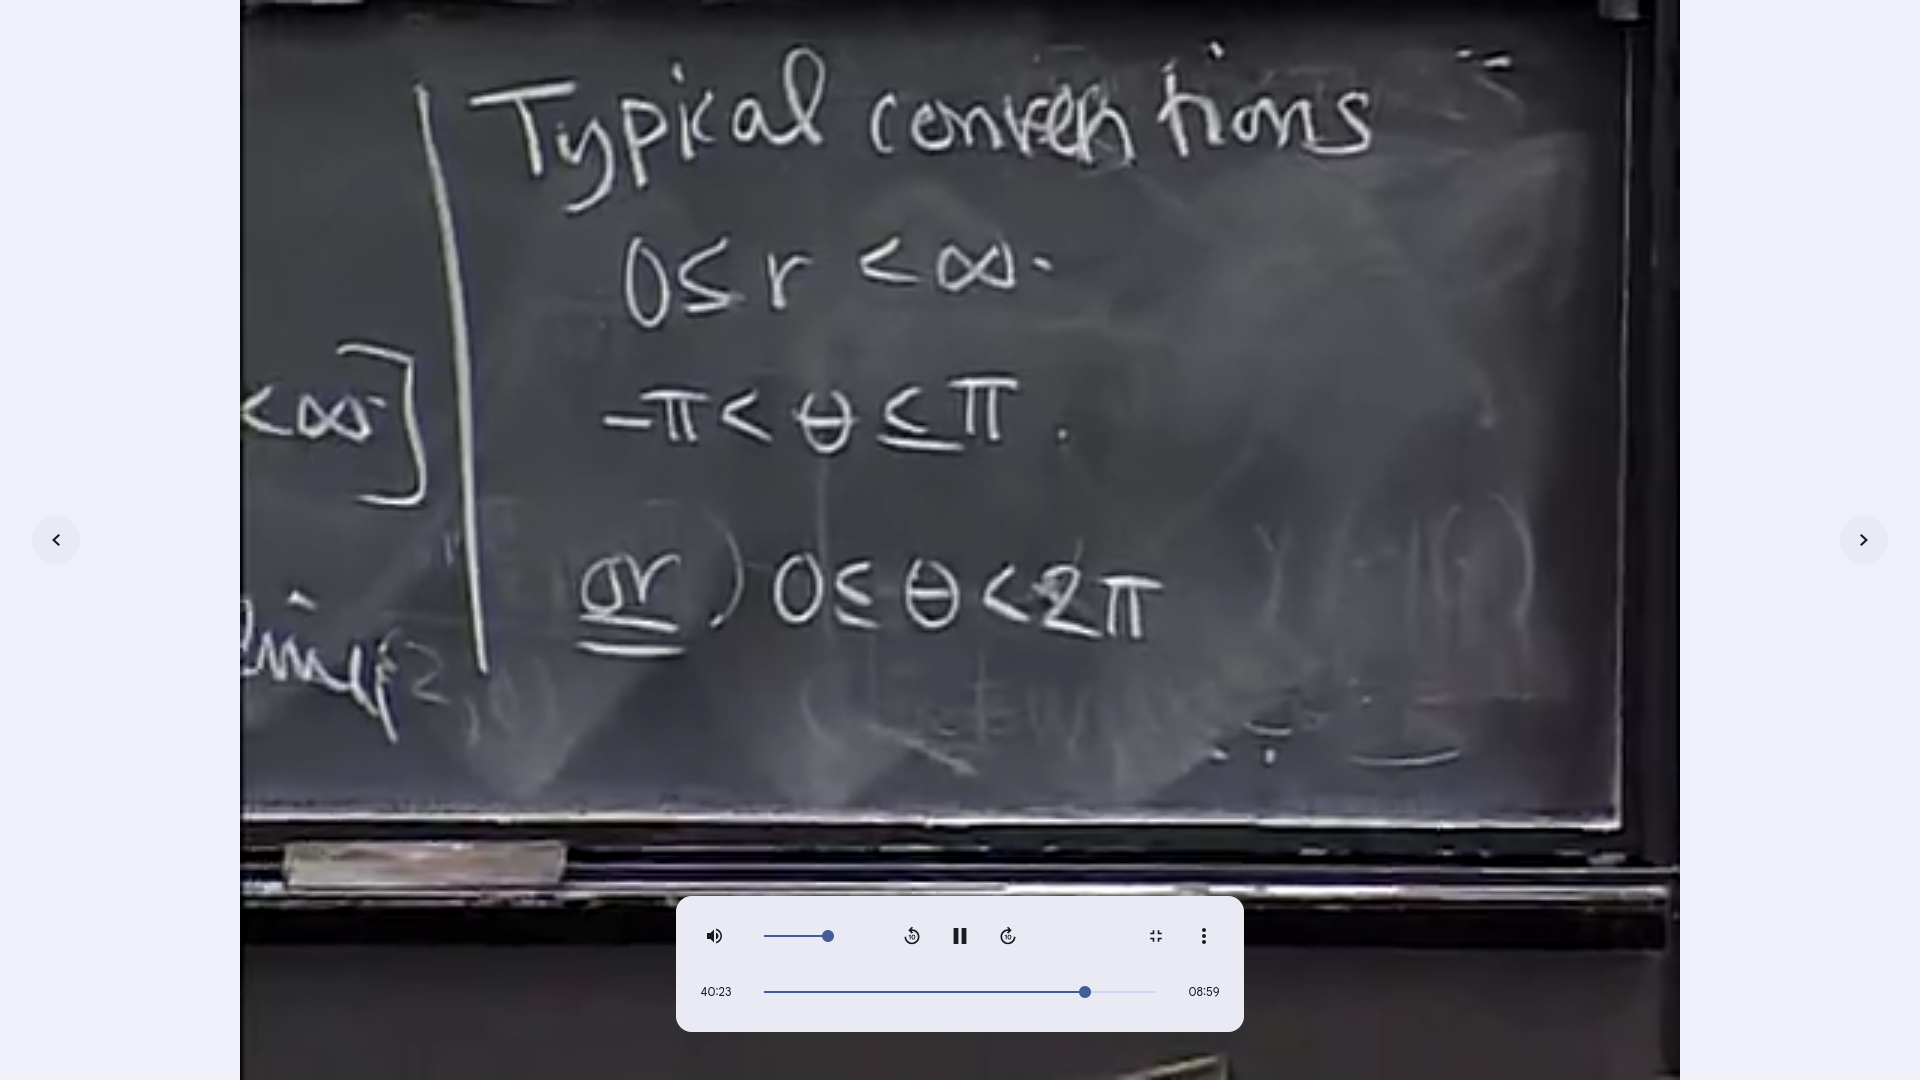 Typical conventions
0 ≤ r < ∞.
< ∞]
-π < θ ≤ π.
or) 0 ≤ θ < 2π
40:23
08:59